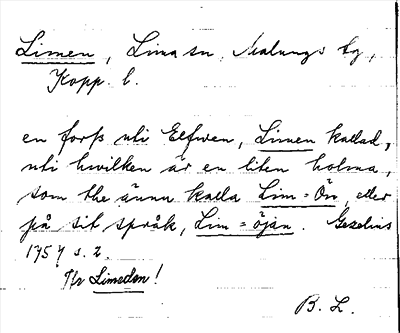 Limen, Lima sn, Malungs tg,
Kopp. l.
en forss uti Elfwen, Limen kallad,
uti hwilken är en liten holma,
som the ännu kalla Lim=Ön, eller
på sit språk, Lim=öjan. Gezelius
1757 s. 2.
Thr Limedan!
B. L.